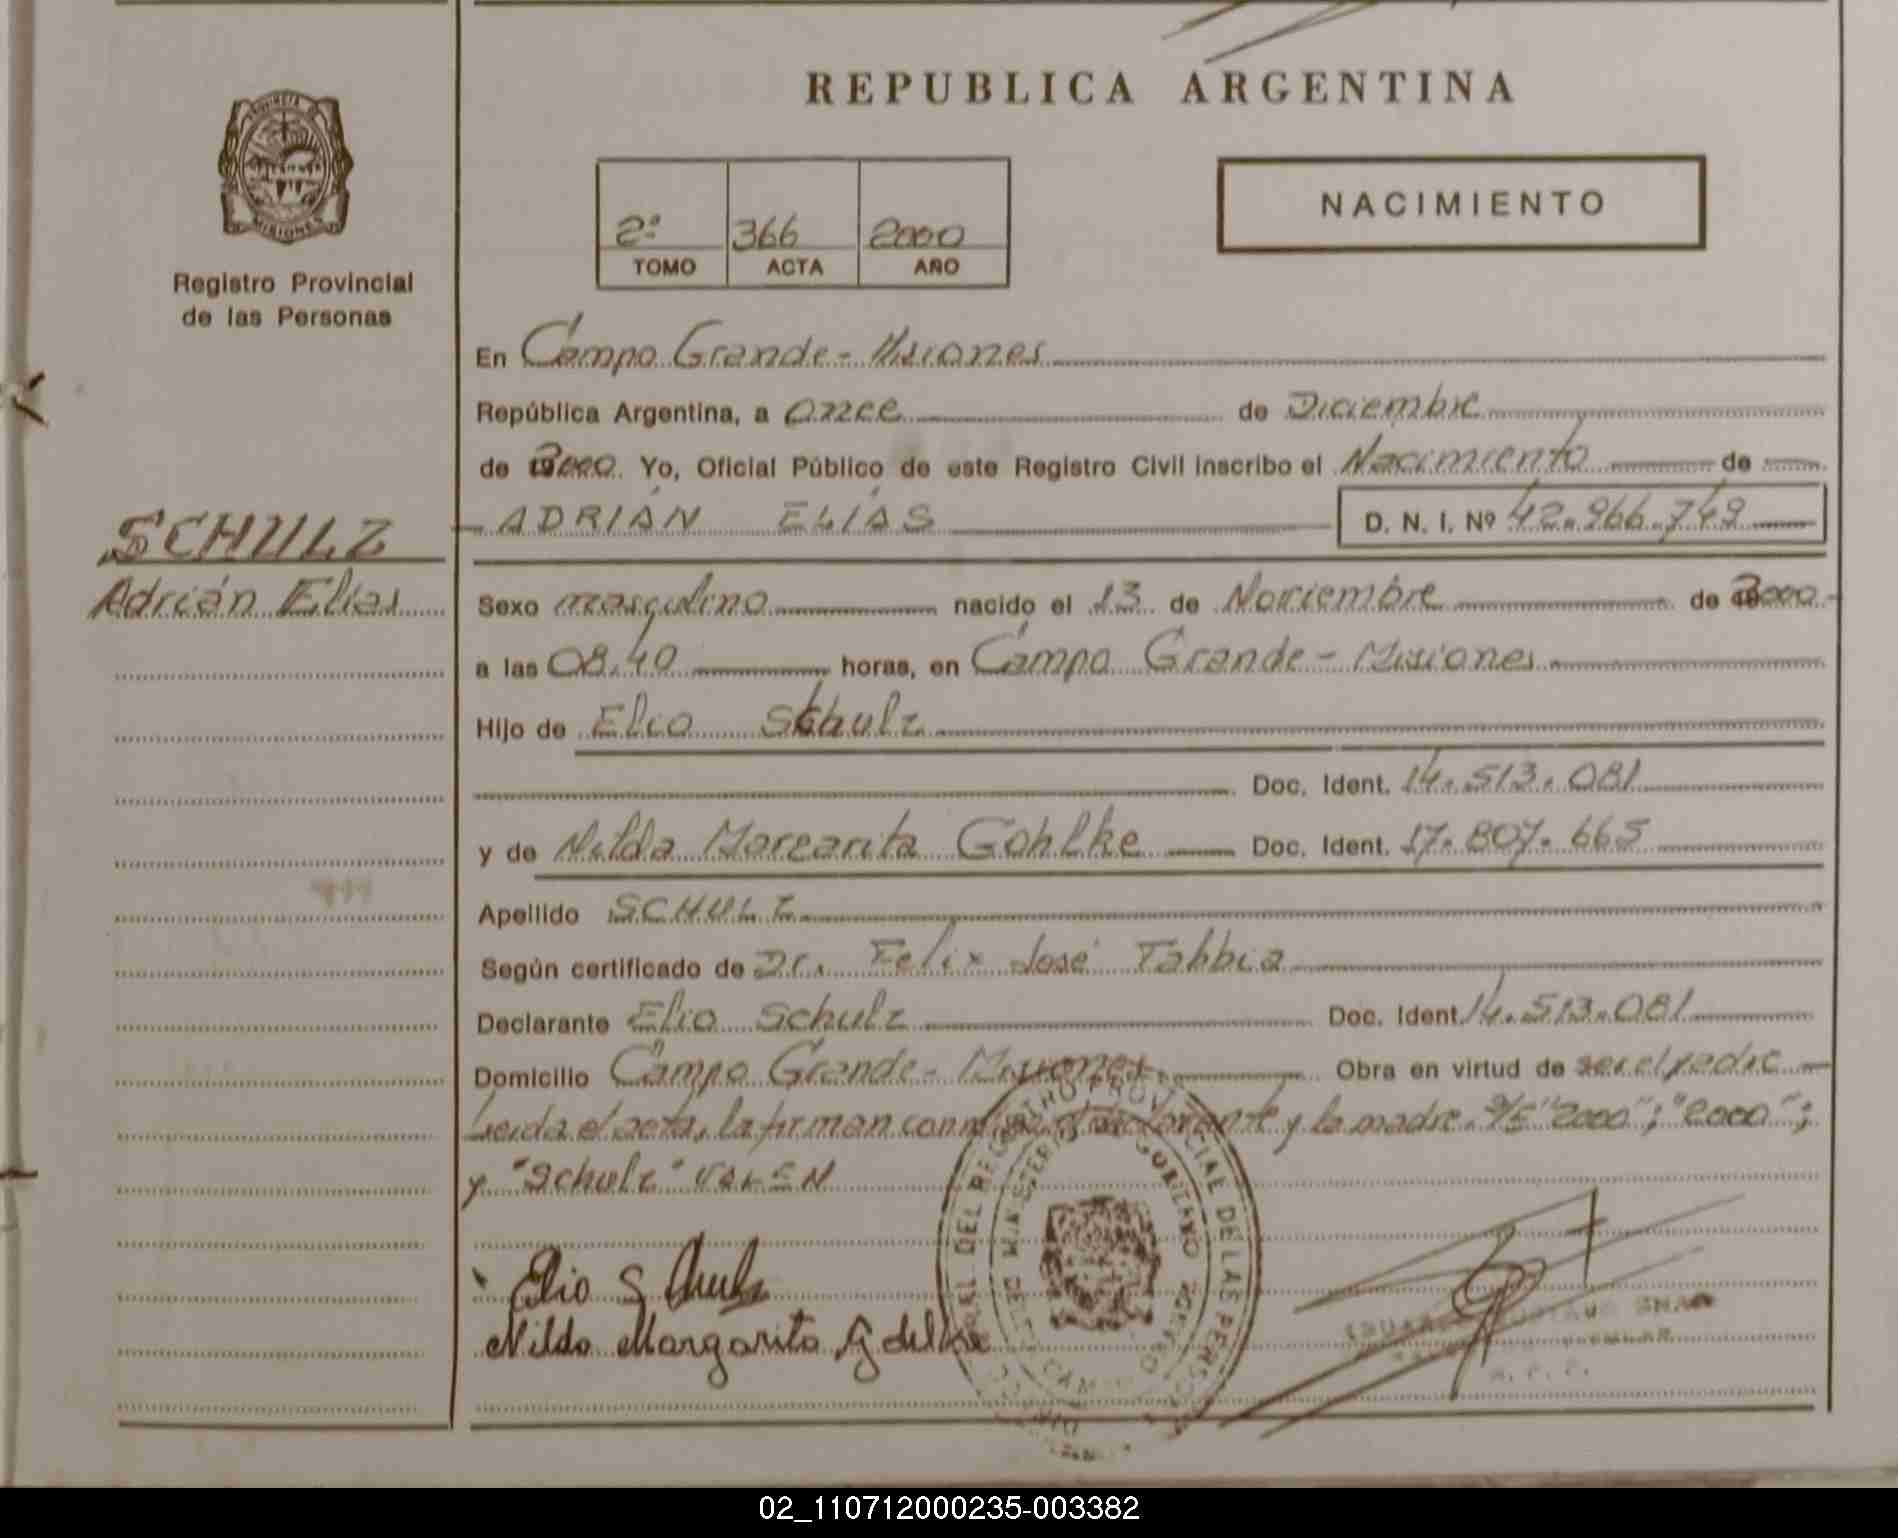 REPUBLICA ARGENTINA
PROVINCIA
MISIONES
Registro Provincial
de las Personas
2º 366 2000
TOMO ACTA AÑO
NACIMIENTO
En Campo Grande - Misiones
República Argentina, a once de Diciembre
de 2000 Yo, Oficial Público de este Registro Civil inscribo el Nacimiento de
ADRIÁN ELÍAS D. N. I. Nº 42.966.749
SCHULZ
Adrián Elías
Sexo masculino nacido el 13 de Noviembre de 2000
a las 08,40 horas, en Campo Grande - Misiones
Hijo de Elio Schulz
Doc. Ident. 14.513.081
y de Nilda Margarita Gohlke Doc. Ident. 17.807.665
Apellido SCHULZ
Según certificado de Dr. Felix José Tabbia
Declarante Elio Schulz Doc. Ident. 14.513.081
Domicilio Campo Grande - Misiones Obra en virtud de ser el padre
Leida el acta, la firman conmigo el declarante y la madre. S/E "2000"; "2000";
y "Schulz" VALEN
Elio Schulz
Nilda Margarita G de
DEL REGISTRO PROVINCIAL DE LAS PERSONAS
MINISTERIO DE GOBIERNO
02_110712000235-003382